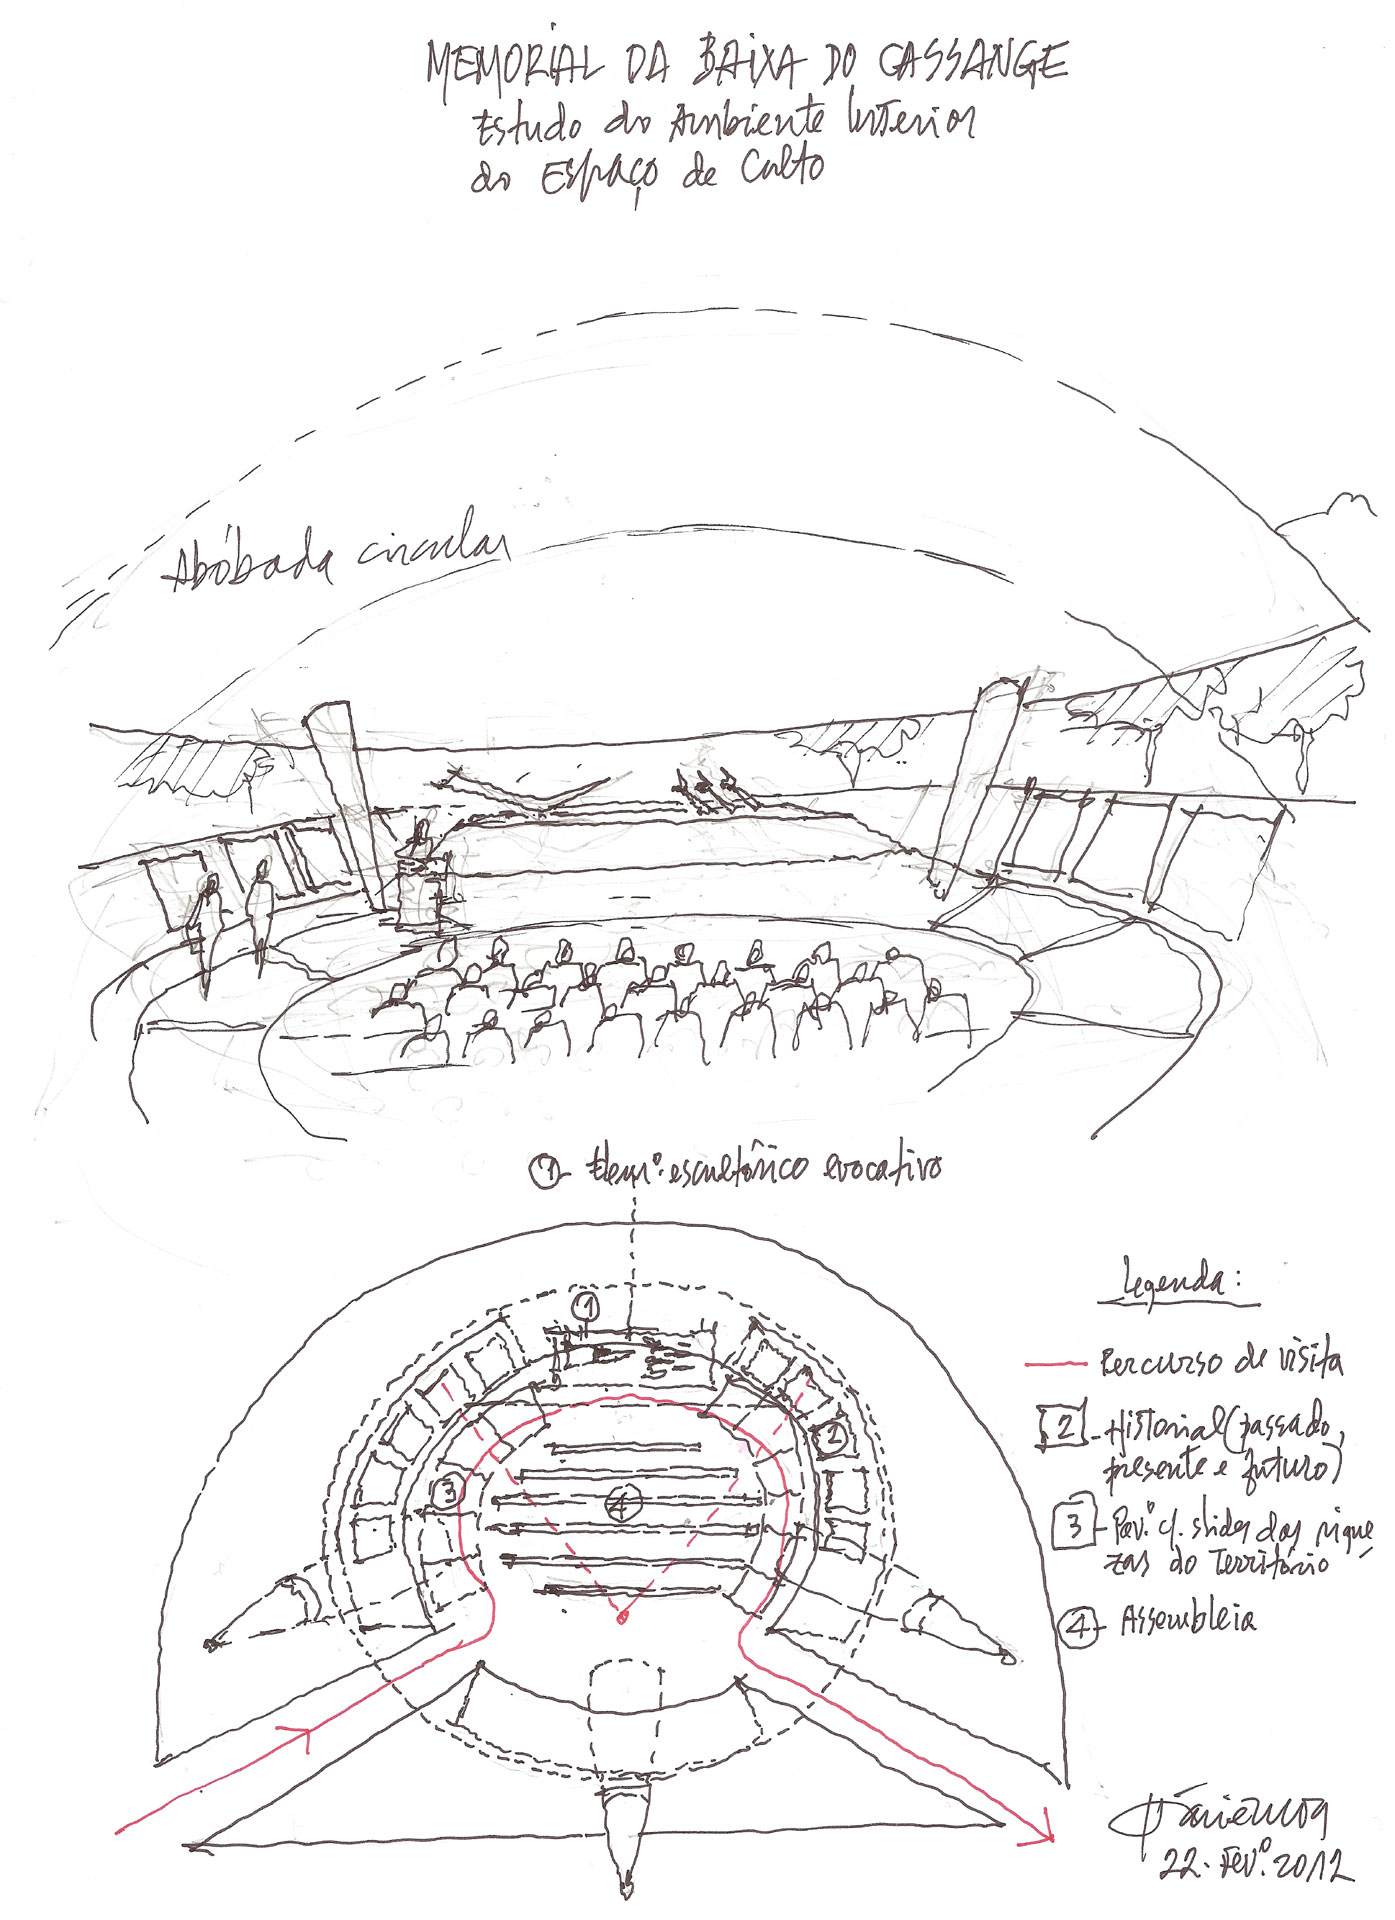 MEMORIAL DA BAIXA DO CASSANGE
Estudo do Ambiente Interior
do Espaço de Culto
Abóbada circular
1- Elemº. escultórico evocativo
1
Legenda:
Percurso de visita
2 - Historial (passado,
presente e futuro)
2
3
4
3 - Pavº. c/. slides das rique
zas do Território
4 - Assembleia
22. Fevº. 2012